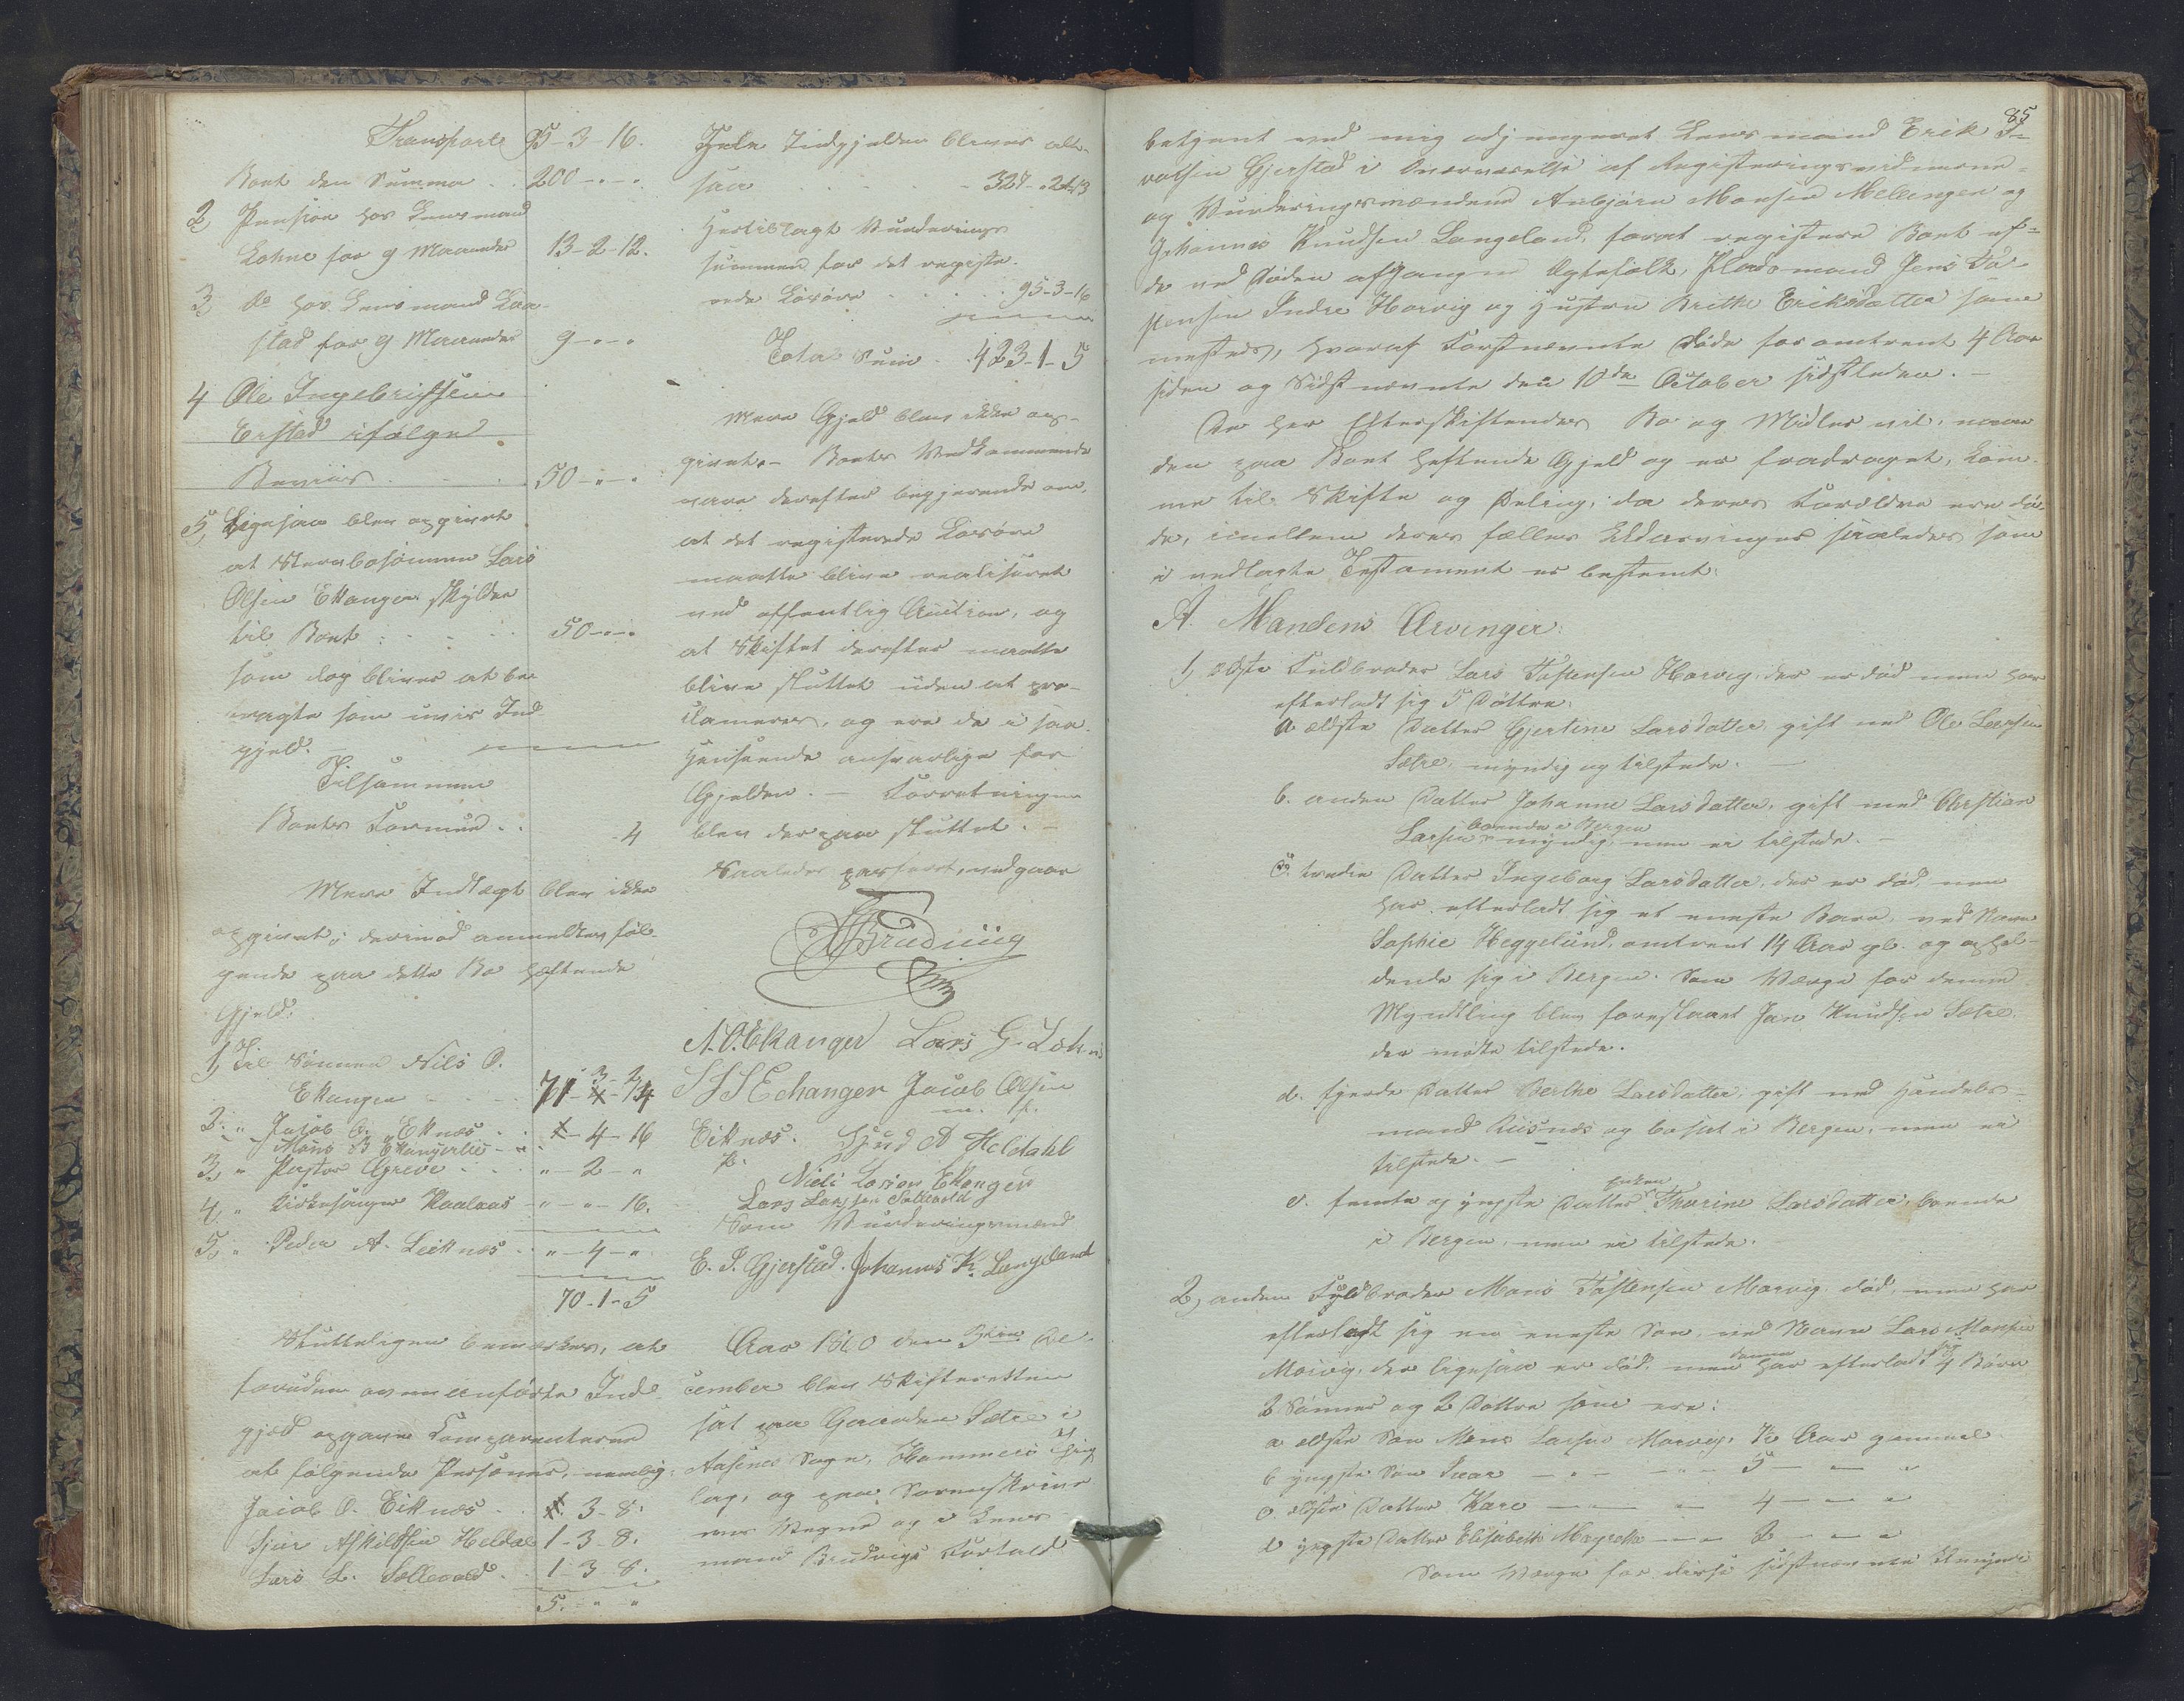 Transport 95-3-16.
Boet den Summa . . 200-"-"
2, Pension hos Lensmand
Lohne for 9 Maaneder 13-2-12.
3, do hos Lensmand Laa-
stad for 9 Maaneder 9-"-"
4 Ole Ingebrigtsen
Erstad ifølge
Beviis . . . 50-"-"
5, Ligesaa blev opgivet
at Stervbosønnen Lars
Olsen Ekanger skylder
til Boet . . . 50-"-"
som dog bliver at be-
tragte som uvis Ind-
gjeld.
Tilsammen
Boets Formue . . 4
Mere Indtægt blev ikke
opgivet; derimod anmeldtes føl-
gende paa dette Bo heftende
Gjeld:
1, Til Sønnen Nils O.
Ekanger
2. " Jacob O. Eknæs . . 4-16
Mons B Ekangerlie
3, " Pastor Greve . . . "-2-"
4, " Kirkesanger Kaalaas "-"-16.
5, " Peder A. Leiknæs . . "-4-"
70-1-5
Sluttelig bemærkes, at
foruden ovenanførte Ind-
gjeld opgave Comparenterne
at følgende Personer, nemlig:
Jacob O. Eiknæs . . 3-8.
Sjur Askildsen Heldal 1-3-8.
Lars L. Sellevold . . 1-3-8.
5. " "
Hele Indgjelden bliver alt-
saa . . . 327-
Hertil lagt Vurderings
summen for det registe-
rede Løsøre . . . 95-3-16
Total Sum . . 423-1-5
Mere Gjeld blev ikke op-
givet. - Boets Vedkommende
vare derefter begjerende om,
at det registerede Løsøre
maatte blive realiseret
ved offentlig Auction, og
at Skiftet derefter maatte
blive sluttet uden at pro-
clameres, og ere de i saa
Henseende ansvarlige for
Gjelden. - Forretningen
blev derpaa sluttet. -
Saaledes passeret, vedgaar
Brudvig
N. O. Ekanger Lars G. Lohne
Echanger Jacob Olsen
Eiknæs. m. f. P. Sjurd A Heldahl
Nieli Larsen Ekanger
Lars Larssen Sellevold
Som Vurderingsmænd
E. I. Gjerstad. Johannes K. Langeland
Aar 1860 den De-
cember blev Skifteretten
sat paa Gaarden Sætre i
Aasene Sogn, Hammers Thing
lag, og paa Sorenskrive-
rens Vegne og i Lens-
mand Brudvigs Forfald
85
betjent ved mig adjungeret Lensmand Erik I-
varsen Gjerstad i Overværelse af Registeringsvidnerne
og Vurderingsmændene Anbjørn Monsen Mellingen og
Johannes Knudsen Langeland, foret registere Boet ef-
de ved Døden afgangne Ægtefolk, Pladsmand Jens Tø-
stensen Indre Horvig og Hustru Brithe Eriksdatter samme-
mesteds, hvoraf Førstnævnte døde for omtrent 4 Aar
siden og Sidstnævnte den 10de October sidstleden. -
De her Efterskiftendes Bo og Midler vil, naar
den paa Boet heftende Gjeld og er fradraget, kom-
me til Skifte og Deling, da deres Forældre ere dø-
de, imellem deres fælles Udarvinger saaledes som
i vedlagte Testament er bestemt:
A. Mandens Arvinger:
1, ældste Fuldbroder Lars Tøstensen Horvig, der er død men har
efterladt sig 5 Døttre:
a ældste Datter Gjertine Larsdatter, gift med Ole Larsen
Sætre, myndig og tilstede. -
b. anden Datter Johanne Larsdatter, gift med Christian
Larsen boende i Bergen myndig, men ei tilstede. -
c. tredie Datter Ingeborg Larsdatter, der er død, men
har efterladt sig et eneste Barn, ved Navn
Sophie Heggelund, omtrent 14 Aar gl. og ophol-
dende sig i Bergen. Som Værge for denne
Myndtling blev foreslaaet Jan Knudsen Sætre,
der mødte tilstede.
d. fjerde Datter Berthe Larsdatter, gift med Handels-
mand Riisnæs og bosat i Bergen, men ei
tilstede. -
e. femte og yngste Datter Enken Thorine Larsdatter, boende
i Bergen, men ei tilstede.
2, anden Fuldbroder Mons Tøstensen Morvig, død, men har
efterladt sig en eneste Søn, ved Navn Lars Monsen
Morvig, der ligesaa er død, men denne har efterladt sig 4 Børn
2 Sønner og 2 Døttre som ere:
a ældste Søn Mons Larsen Morvig, Aar gammel
b yngste Søn Ivar - " - - " - 5 - " - "
c. ældste Datter Kare - " - 4 - " - "
d yngste Datter Elisabeth Magrethe - " - 2 - " - "
Som Værge for disse sidstnævnte Umyndi-